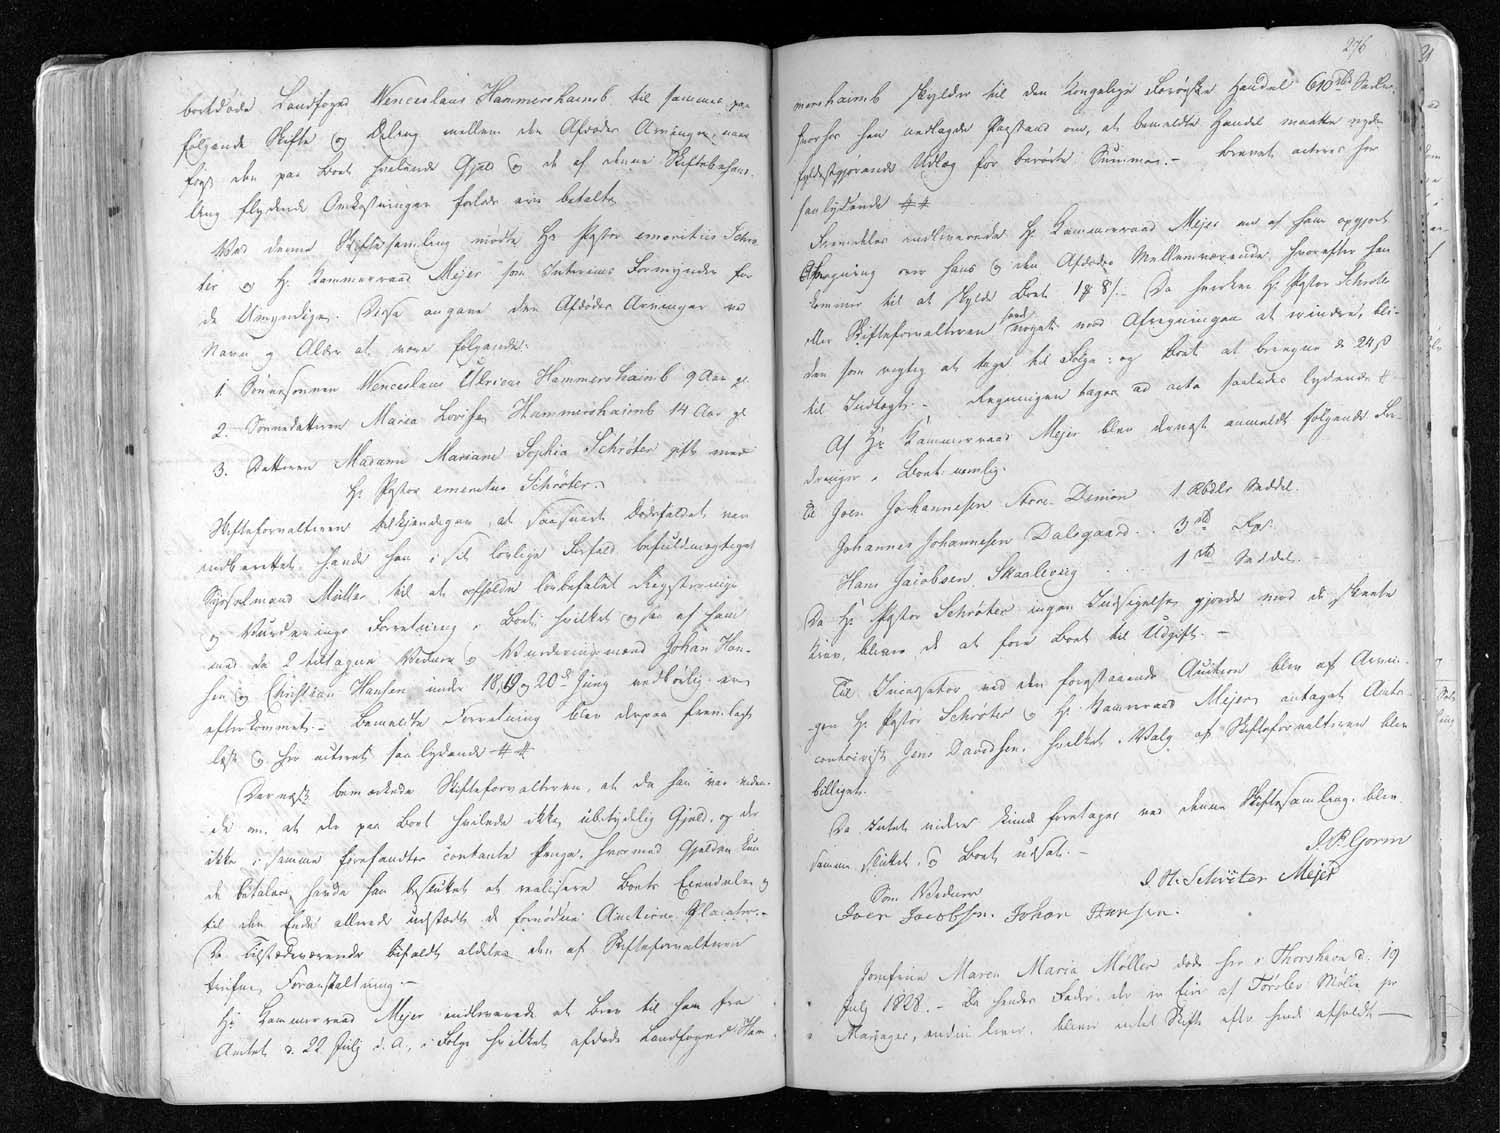 bortdøde Landfoged Wenceslaus Hammershaimb til sammes paa
følgende Skifte og Deling mellem den Afdødes Arvinger, naar
først den paa Boet hvilende Gjæld og de af denne Skiftebehand-
ling flydende Omkostninger forlods ere betalte
Ved denne Skiftesamling mødte Hr Pastor emeritus Schrø-
ter og Hr. Kammerraad Mejer som Interims Formynder for
de Umyndige. Disse angave den Afdødes Arvinger ved
Navn og Alder at være følgende:
1. Sønnesønnen Wenceslaus Ulricus Hammershaimb 9 Aar gl.
2. Sønnedatteren Maria Lovise Hammershaimb 14 Aar gl
3. Datteren Madame Mariane Sophia Schrøter gift med
Hr Pastor emeritus Schrøter.
Skifteforvalteren tilkjendegav, at saasnart Dødsfaldet var
indberettet, havde han i sit lovlige Forfald befuldmægtiget
Sysselmand Müller til at afholde lovbefalet Registrerings
og Vurderings Forretning i Boet, hvilket og saa af ham
med de 2 tiltagne Vidner og Vurderingsmænd Johan Han-
sen og Christian Hansen under 18, 19 og 20de Juny nedbørlig er
efterkommet. – Bemeldte Forretning blev derpaa fremlagt
læst og her acteret saa lydende ##
Dernæst bemærkede Skifteforvalteren, at da han var viden-
de om, at der paa Boet hvilede ikke ubetydelig Gjæld, og der
ikke i samme forefandtes contante Penge, hvormed Gjælden kun
de betales, havde han besluttet at realisere Boets Eiendele og
til den Ende allerede udstædt de fornødne Auctions Placater. –
De Tilstædeværende bifaldt aldeles den af Skifteforvalteren
trufne Foranstaltning. –
Hr Kammerraad Mejer indleverede et Brev til ham fra
Amtet d. 22 July d. A., i Følge hvilket afdøde Landfoged Ham-
276
mershaimb skylder til den kongelige Færøiske Handel 610 rbd Sedler,
hvorfor han nedlagde Paastand om, at bemeldte Handel maatte nyde
fyldestgjørende Udlæg for berørte Summa. – Brevet acteres her
saalydende ##
Fremdeles indleverede Hr Kammerraad Mejer en af ham opgjort
Afregning over hans og den Afdødes Mellemværende, hvorefter han
kommer til at skylde Boet 18 8/. – Da hverken Hr Pastor Schrøter
eller Skifteforvalteren havde noget mod Afregningen at erindre, bli-
den som rigtig at tage til Følge: og Boet at beregne 24 s
til Indtægt. – Regningen tages ad acta saaledes lydende #
Af Hr Kammerraad Mejer blev dernæst anmeldt følgende For-
dringer i Boet nemlig.
Til Joen Johannesen Store Dimon 1 Rbdlr Seddel.
Johannes Johannesen Dalsgaard . . 3 rd Rep.
Hans Jacobsen, Skaalevig . . . 1 rd Seddel. –
Da Hr Pastor Schrøter ingen Indsigelse gjorde mod de skeete
Krav, bliver de at føre Boet til Udgift. –
Til Incassator ved den forestaaende Auction blev af Arvin-
gen Hr Pastor Schrøter og Hr. Kammerraad Mejer antaget Amts-
contoirist Jens Davidsen, hvilket Valg af Skifteforvalteren blev
billiget.
Da Intet videre kunde foretages ved denne Skiftesamling, blev
samme sluttet og Boet udsat. –
Gorm
Som Vidner
J. H. Schröter Mejer
Joen Jacobsen. Johan Hansen.
Jomfrue Maren Maria Müller døde her i Thorshavn d: 19
July 1828. – Da hendes Fader, der er Eier af Tørslev Mølle pr
Mariager, endnu lever, bliver intet Skifte efter hende afholdt –